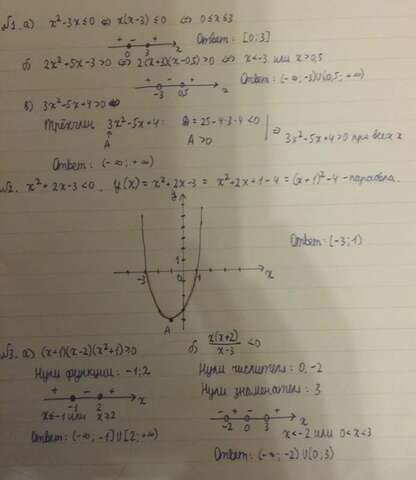 №1. а) x² - 3x ≤ 0 ⇔ x(x-3) ≤ 0 ⇔ 0 ≤ x ≤ 3
+ - +
0 3 x
Ответ: [0; 3]
б) 2x² + 5x - 3 > 0 ⇔ 2(x+3)(x-0,5) > 0 ⇔ x < -3 или x > 0,5
+ - +
-3 0,5 x
Ответ: (-∞; -3)∪(0,5; +∞)
в) 3x² - 5x + 4 > 0 ⇔
Трёхчлен 3x² - 5x + 4: D = 25 - 4·3·4 < 0
A A > 0
⇒ 3x² - 5x + 4 > 0 при всех x
Ответ: (-∞; +∞)
№2. x² + 2x - 3 < 0. y(x) = x² + 2x - 3 = x² + 2x + 1 - 4 = (x+1)² - 4 - парабола.
y
Ответ: (-3; 1)
1
-3 1 x
A
№3. а) (x+1)(x-2)(x²+1) ≥ 0
Нули функции: -1; 2
+ - +
-1 2 x
x ≤ -1 или x ≥ 2
Ответ: (-∞; -1]∪[2; +∞)
б) x(x+2)
x-3 < 0
Нули числителя: 0, -2
Нули знаменателя: 3
- + - +
-2 0 3 x
x < -2 или 0 < x < 3
Ответ: (-∞; -2)∪(0; 3)